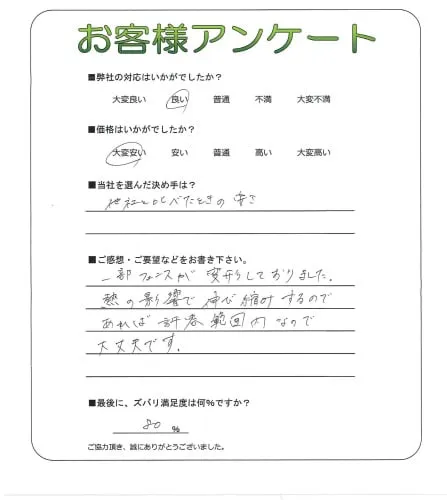 お客様アンケート
■弊社の対応はいかがでしたか？
大変良い 良い 普通 不満 大変不満
■価格はいかがでしたか？
大変安い 安い 普通 高い 大変高い
■当社を選んだ決め手は？
他社と比べたときの安さ
■ご感想・ご要望などをお書き下さい。
一部フェンスが変形しておりました。
熱の影響で伸び縮みするので
あれば許容範囲内なので
大丈夫です。
■最後に、ズバリ満足度は何%ですか？
80 %
ご協力頂き、誠にありがとうございました。